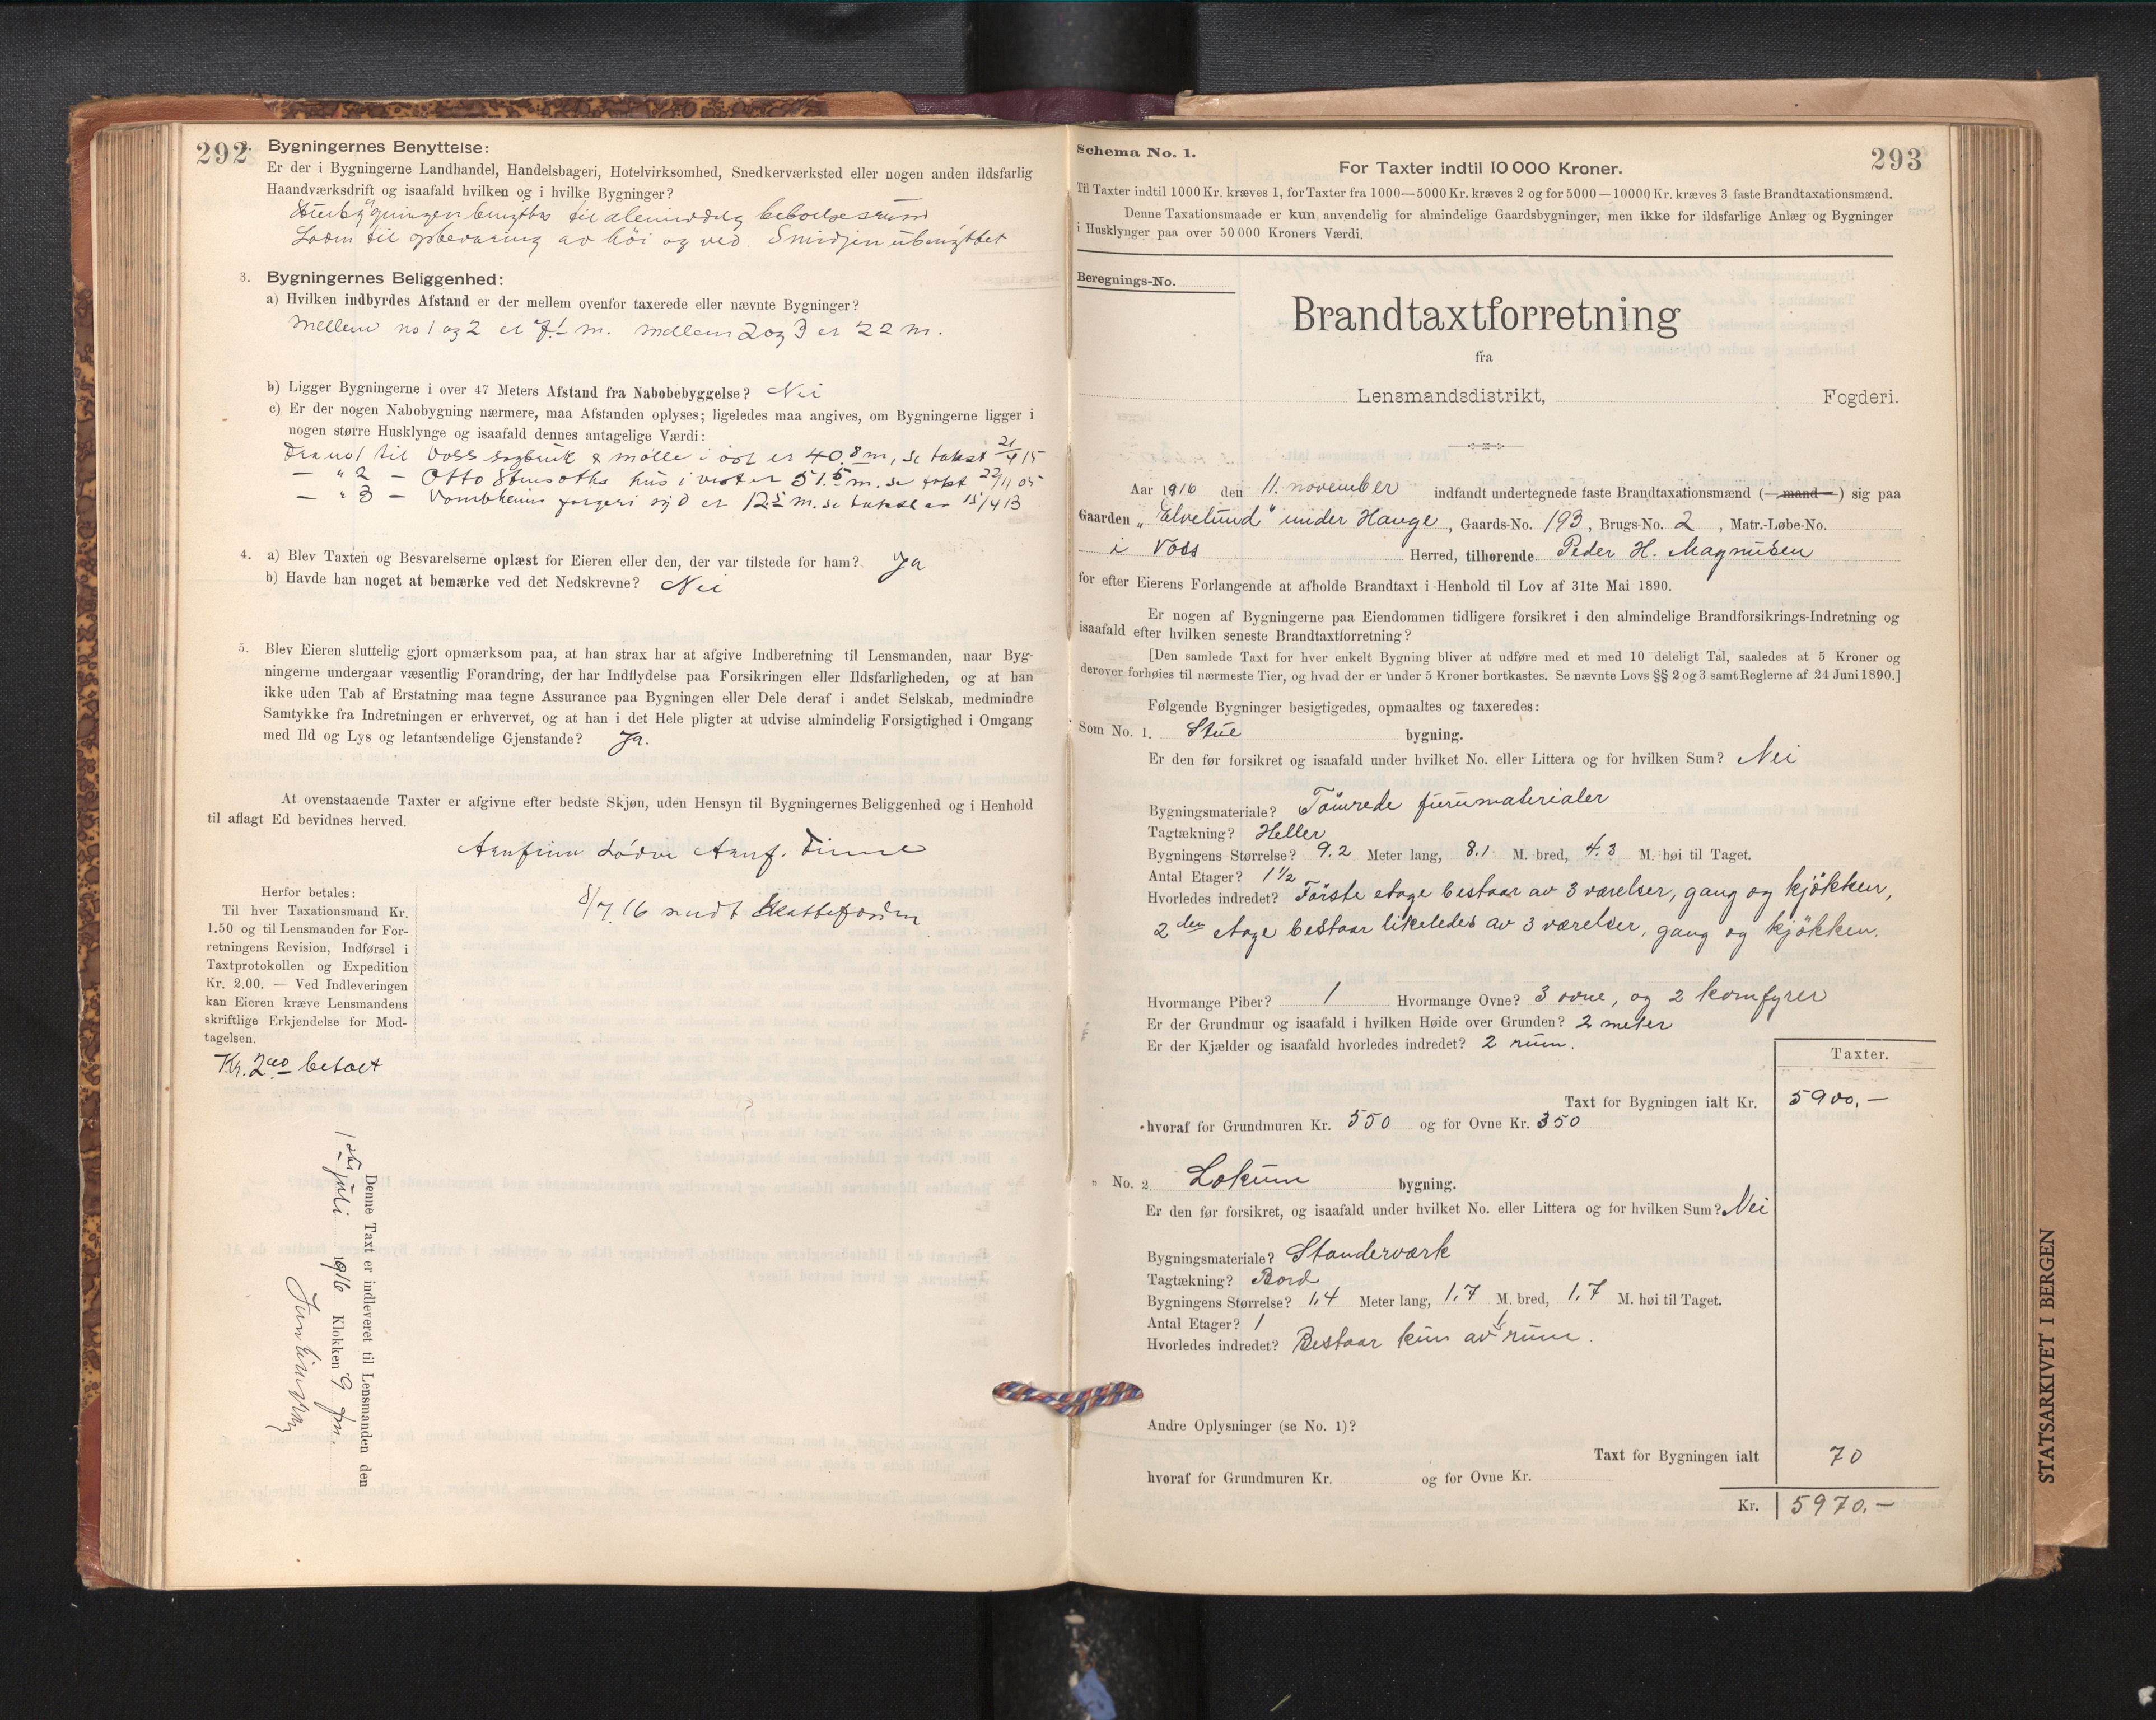 292
2. Bygningernes Benyttelse:
Er der i Bygningerne Landhandel, Handelsbageri, Hotelvirksomhed, Snedkerværksted eller nogen anden ildsfarlig
Haandværksdrift og isaafald hvilken og i hvilke Bygninger?
Stuebygningen benyttes til almindelig beboelsesrum
Loden til opbevaring av höi og ved. Smidjen ubenyttet
3. Bygningernes Beliggenhed:
a) Hvilken indbyrdes Afstand er der mellem ovenfor taxerede eller nævnte Bygninger?
mellem no 1 og 2 er 7.1 m. mellem 2 og 3 er 22 m.
b) Ligger Bygningerne i over 47 Meters Afstand fra Nabobebyggelse? Nei
c) Er der nogen Nabobygning nærmere, maa Afstanden oplyses; ligeledes maa angives, om Bygningerne ligger i
nogen større Husklynge og isaafald dennes antagelige Værdi:
Fra no 1 til Voss sagbruk & mølle i öst er 40.8 m, se takst 21/4 15
— " 2 — Otto hus i vest er 51.5 m. se takst 22/11 05
— " 3 — syd er 12.5 m. se takst av 15/4 13
4. a) Blev Taxten og Besvarelserne oplæst for Eieren eller den, der var tilstede for ham? Ja
b) Havde han noget at bemærke ved det Nedskrevne? Nei
5. Blev Eieren sluttelig gjort opmærksom paa, at han strax har at afgive Indberetning til Lensmanden, naar Byg-
ningerne undergaar væsentlig Forandring, der har Indflydelse paa Forsikringen eller Ildsfarligheden, og at han
ikke uden Tab af Erstatning maa tegne Assurance paa Bygningen eller Dele deraf i andet Selskab, medmindre
Samtykke fra Indretningen er erhvervet, og at han i det Hele pligter at udvise almindelig Forsigtighed i Omgang
med Ild og Lys og letantændelige Gjenstande? Ja.
At ovenstaaende Taxter er afgivne efter bedste Skjøn, uden Hensyn til Bygningernes Beliggenhed og i Henhold
til aflagt Ed bevidnes herved.
Arnfinn Lödve Arnf. Finne
8/7 16 sendt
Herfor betales:
Til hver Taxationsmand Kr.
1.50 og til Lensmanden for For-
retningens Revision, Indførsel i
Taxtprotokollen og Expedition
Kr. 2.00. — Ved Indleveringen
kan Eieren kræve Lensmandens
skriftlige Erkjendelse for Mod-
tagelsen.
Kr. 2.00 betalt
Denne Taxt er indleveret til Lensmanden den
1ste juli 1916 Klokken 9 fm.
293
Schema No. 1.
For Taxter indtil 10 000 Kroner.
Til Taxter indtil 1000 Kr. kræves 1, for Taxter fra 1000—5000 Kr. kræves 2 og for 5000—10000 Kr. kræves 3 faste Brandtaxationsmænd.
Denne Taxationsmaade er kun anvendelig for almindelige Gaardsbygninger, men ikke for ildsfarlige Anlæg og Bygninger
i Husklynger paa over 50 000 Kroners Værdi.
Beregnings-No.
Brandtaxtforretning
fra
Lensmandsdistrikt, Fogderi.
Aar 1916 den 11. november indfandt undertegnede faste Brandtaxationsmænd (— mand —) sig paa
Gaarden „Elvelund" under Hauge, Gaards-No. 193, Brugs-No. 2, Matr.-Løbe-No.
i Voss Herred, tilhørende Peder H. Magnusen
for efter Eierens Forlangende at afholde Brandtaxt i Henhold til Lov af 31te Mai 1890.
Er nogen af Bygningerne paa Eiendommen tidligere forsikret i den almindelige Brandforsikrings-Indretning og
isaafald efter hvilken seneste Brandtaxtforretning?
[Den samlede Taxt for hver enkelt Bygning bliver at udføre med et med 10 deleligt Tal, saaledes at 5 Kroner og
derover forhøies til nærmeste Tier, og hvad der er under 5 Kroner bortkastes. Se nævnte Lovs §§ 2 og 3 samt Reglerne af 24 Juni 1890.]
Følgende Bygninger besigtigedes, opmaaltes og taxeredes:
Som No. 1. Stue bygning.
Er den før forsikret og isaafald under hvilket No. eller Littera og for hvilken Sum? Nei
Bygningsmateriale? Tömrede furumaterialer
Tagtækning? Heller
Bygningens Størrelse? 9.2 Meter lang, 8.1 M. bred, 4.3 M. høi til Taget.
Antal Etager? 1½
Hvorledes indredet? Förste etage bestaar av 3 værelser, gang og kjökken,
2den etage bestaar likeledes av 3 værelser, gang og kjökken.
Hvormange Piber? 1 Hvormange Ovne? 3 ovne, og 2 komfyrer
Er der Grundmur og isaafald i hvilken Høide over Grunden? 2 meter
Er der Kjælder og isaafald hvorledes indredet? 2 rum.
Taxter.
Taxt for Bygningen ialt Kr. 5900,—
hvoraf for Grundmuren Kr. 550 og for Ovne Kr. 350
" No. 2. Lokum bygning.
Er den før forsikret, og isaafald under hvilket No. eller Littera og for hvilken Sum? Nei
Bygningsmateriale? Standerværk
Tagtækning? Bord
Bygningens Størrelse? 1,4 Meter lang, 1,7 M. bred, 1,7 M. høi til Taget.
Antal Etager? 1
Hvorledes indredet? Bestaar kun av 1 rum.
Andre Oplysninger (se No. 1)?
Taxt for Bygningen ialt 70
hvoraf for Grundmuren Kr. og for Ovne Kr.
Kr. 5970.—
STATSARKIVET I BERGEN